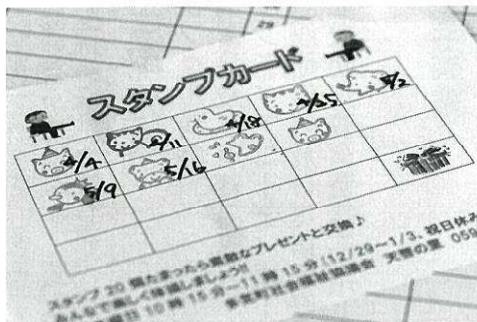 スタンプカード
4/4 4/11 4/18 4/25 5/2
5/9 5/16
スタンプ20個たまったら素敵なプレゼントと交換♪
みんなで楽しく体操しましょう!!
曜日10時15分~11時15分(12/29~1/3、祝日休み
町社会福祉協議会 天啓の里 059